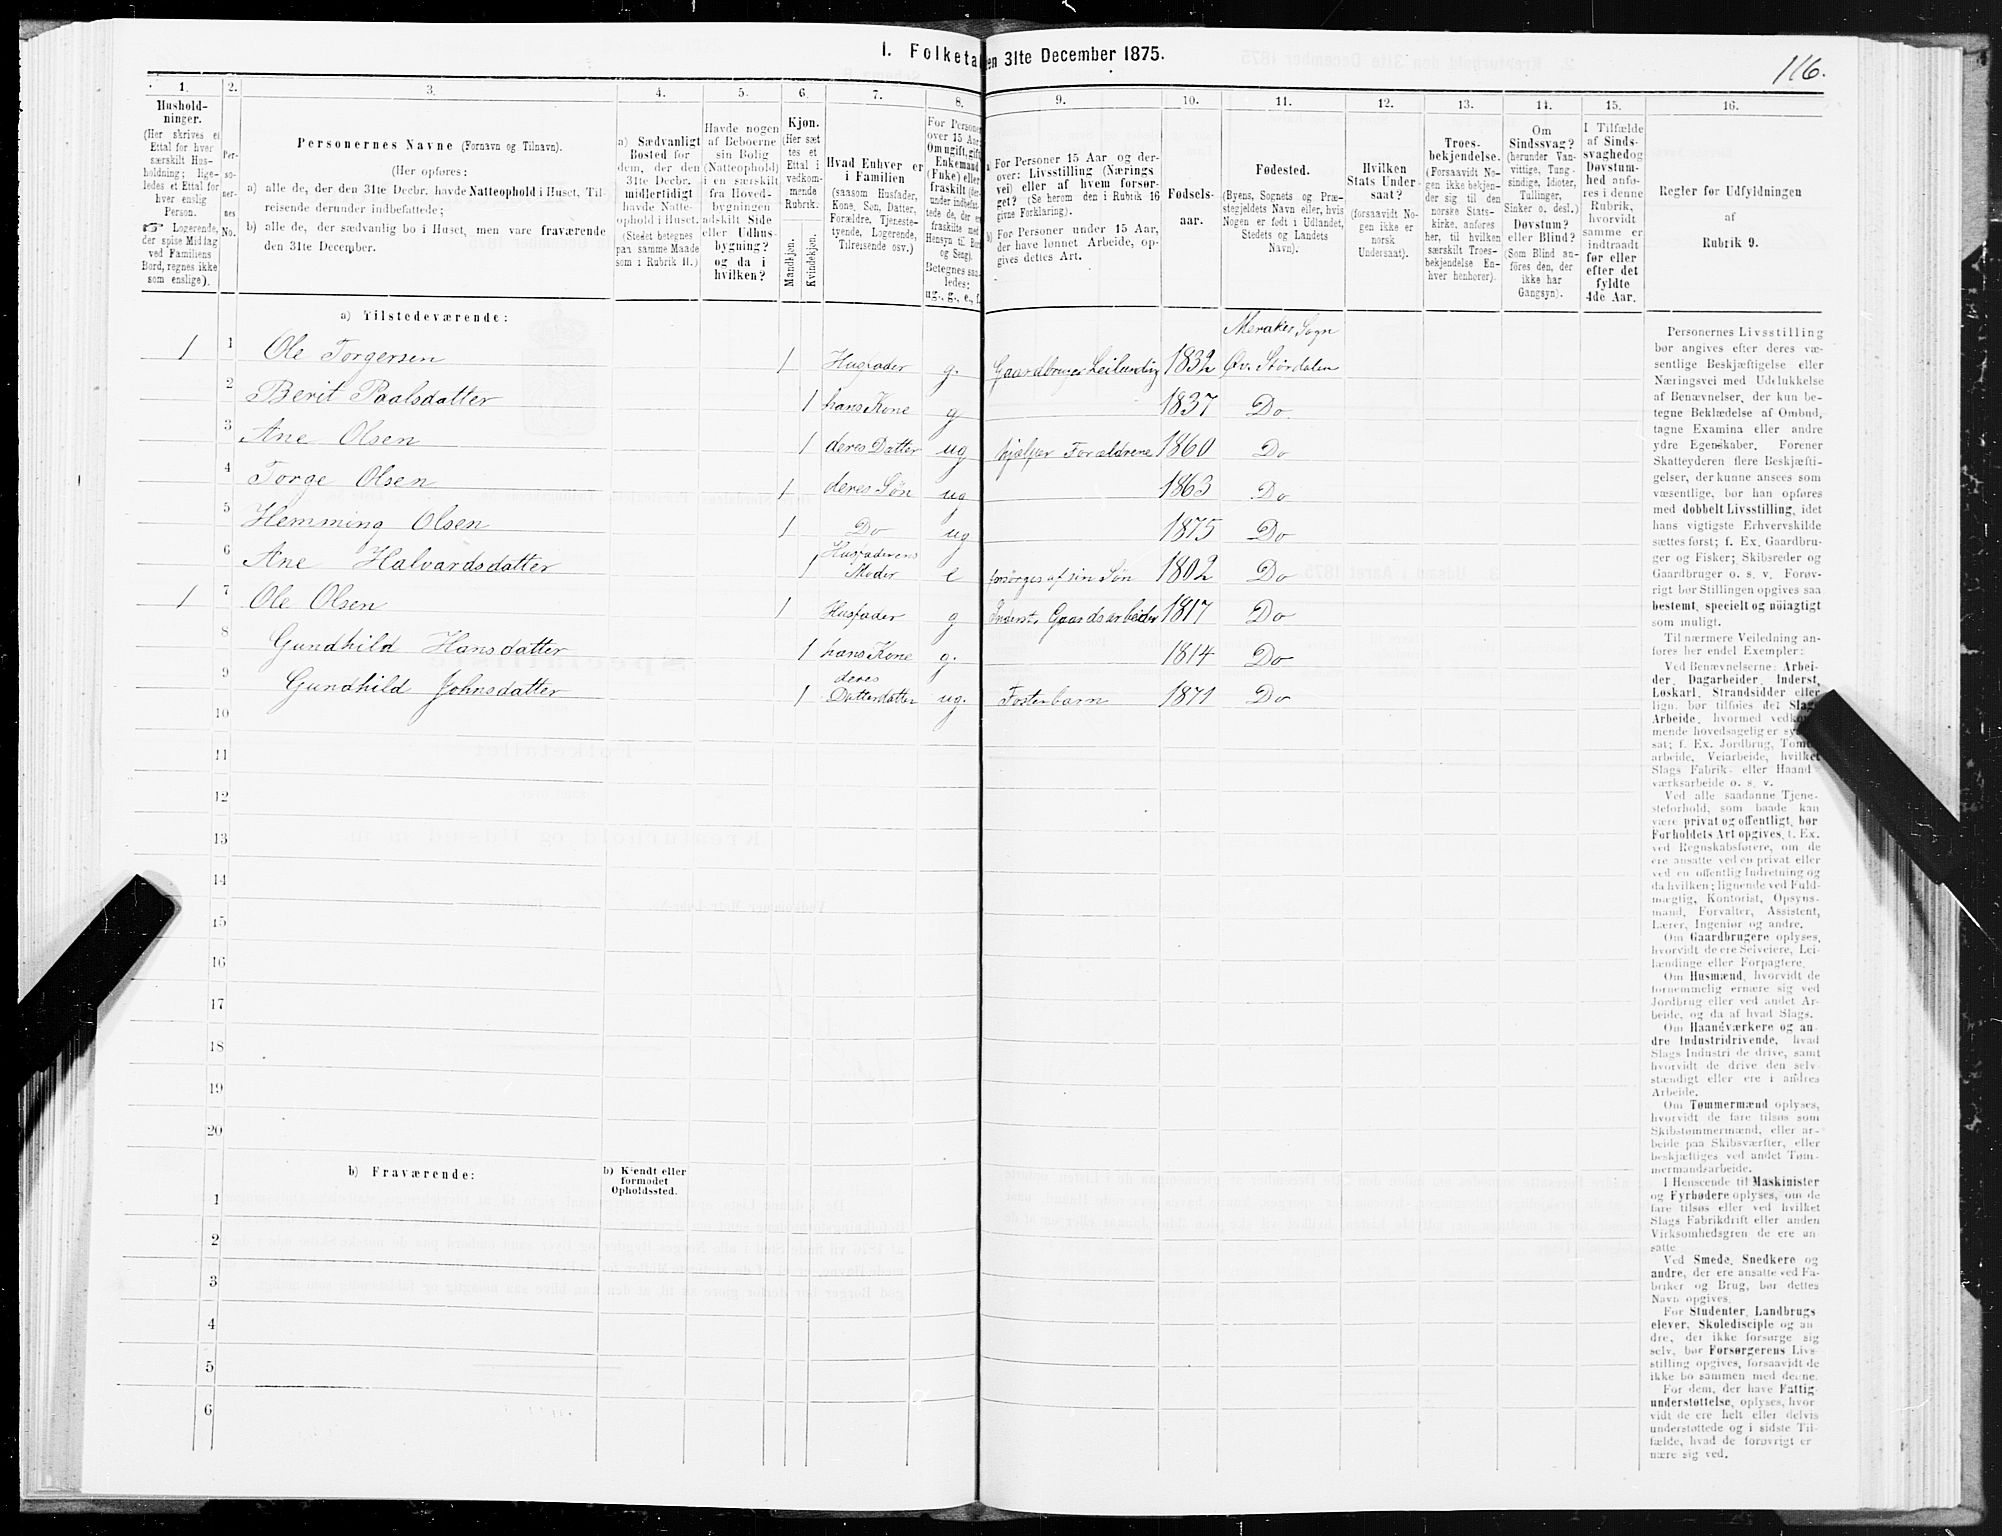 I. Folketal den 31te December 1875.
116.
1. 2. 3. 4. 5. 6. 7. 8. 9. 10. 11. 12. 13. 14. 15. 16.
Hushold-
ninger.
(Her skrives et
Ettal for hver
særskilt Hus-
holdning; lige-
ledes et Ettal for
hver enslig
Person.
☞ Logerende,
der spise Middag
ved Familiens
Bord, regnes ikke
som enslige).
Per-
so-
ner-
nes
No.
Personernes Navne (Fornavn og Tilnavn).
(Her opføres:
a) alle de, der den 31te Decbr. havde Natteophold i Huset, Til-
reisende derunder indbefattede;
b) alle de, der sædvanlig bo i Huset, men vare fraværende
den 31te December.
a) Sædvanligt
Bosted for
dem, der den
31te Decbr.
midlertidigt
havde Natte-
ophold i Huset.
(Stedet betegnes
paa samme Maade
som i Rubrik 11.)
Havde nogen
af Beboerne
sin Bolig
(Natteophold)
i en særskilt
fra Hoved-
bygningen
adskilt Side
eller Udhus-
bygning?
og da i
hvilken?
Kjøn.
(Her sæt
tes et
Ettal i
vedkom-
mende
Rubrik.
Mandkjøn.
Kvindekjøn.
Hvad Enhver er
i Familien
(saasom Husfader,
Kone, Søn, Datter,
Forældre, Tjeneste-
tyende, Logerende,
Tilreisende osv.)
For Personer
over 15 Aar:
Om ugift, gift,
Enkemand
(Fuke) eller
fraskilt (der-
under indbefat-
tede de, der ere
fraskilte med
Hensyn til Bord
og Seng).
Betegnes saa-
ledes:
ug., g., e., f.
a) For Personer 15 Aar og der-
over: Livsstilling (Nærings
vei) eller af hvem forsør-
get? (Se herom den i Rubrik 16
givne Forklaring).
b) For Personer under 15 Aar,
der have lønnet Arbeide, op-
gives dettes Art.
Fødsels-
aar.
Fødested.
(Byens, Sognets og Præ-
stegjeldets Navn eller, hvis
Nogen er født i Udlandet,
Stedets og Landets
Navn).
Hvilken
Stats Under-
saat?
(forsaavidt No-
gen ikke er
norsk
Undersaat).
Troes-
bekjendelse.
(Forsaavidt No-
gen ikke bekjen-
der sig til den
norske Stats-
kirke, anføres
her, til hvilken
særskilt Troes-
bekjendelse En-
hver henhører).
Om
Sindssvag?
(herunder Van-
vittige, Tung-
sindige, Idioter,
Tullinger,
Sinker o. desl.)
Døvstum?
eller Blind?
(Som Blind an-
føres den, der
ikke har
Gangsyn).
I Tilfælde
af Sinds-
svaghed og
Døvstum-
hed anfø-
res i denne
Rubrik,
hvorvidt
samme er
indtraadt
før eller
efter det
fyldte
4de Aar.
Regler for Udfyldningen
af
Rubrik 9.
a) Tilstedeværende:
Meraker Sogn
1 1 Ole Torgersen 1 Husfader g. Gaardbruger Leilending 1832 Øv. Størdalen
2 Berit Paalsdatter 1 hans Kone g 1837 Do
3 Ane Olsen 1 deres Datter ug hjelper Forældrene 1860 Do
4 Torge Olsen 1 deres Søn ug 1863 Do
5 Hemming Olsen 1 Do ug 1875 Do
6 Ane Halvardsdatter 1 Husfaderens Moder e forsørges af sin Søn 1802 Do
1 7 Ole Olsen 1 Husfader g Inderst, Gaardsarbeider 1817 Do
8 Gundhild Hansdatter 1 hans Kone g. 1814 Do
9 Gundhild Johnsdatter 1 deres Datterdatter ug. Fosterbarn 1871 Do
10
11
12
13
14
15
16
17
18
19
20
b) Fraværende:
b) Kjendt eller
formodet
Opholdssted.
1
2
3
4
5
6
Personernes Livsstilling
bør angives efter deres væ-
sentlige Beskjæftigelse eller
Næringsvei med Udelukkelse
af Benævnelser, der kun be-
tegne Beklædelse af Ombud,
tagne Examina eller andre
ydre Egenskaber. Forener
Skatteyderen flere Beskjæfti-
gelser, der kunne ansees som
væsentlige, bør han opføres
med dobbelt Livsstilling, idet
hans vigtigste Erhvervskilde
sættes først; f. Ex. Gaardbru-
ger og Fisker; Skibsreder og
Gaardbruger o. s. v. Forøv-
rigt bør Stillingen opgives saa
bestemt, specielt og nøiagtigt
som muligt.
Til nærmere Veiledning an-
føres her endel Exempler:
Ved Benævnelserne: Arbei-
der, Dagarbeider, Inderst,
Løskarl, Strandsidder eller
lign. bør tilføies det Slags
Arbeide, hvormed vedkom-
mende hovedsagelig er syssel-
sat; f. Ex. Jordbrug, Tomte-
arbeide, Veiarbeide, hvilket
Slags Fabrik- eller Haand-
værksarbeide o. s. v.
Ved alle saadanne Tjene-
steforhold, som baade kan
være privat og offentligt, bør
Forholdets Art opgives, t. Ex.
ved Regnskabsførere, om de
ere ansatte ved en privat eller
ved en offentlig Indretning og
da hvilken; lignende ved Fuld-
mægtig, Kontorist, Opsyns-
mand, Forvalter, Assistent,
Lærer, Ingeniør og andre.
Om Gaardbrugere oplyses,
hvorvidt de ere Selveiere, Lei-
lændinge eller Forpagtere.
Om Husmænd, hvorvidt de
fornemmelig ernære sig ved
Jordbrug eller ved andet Ar-
beide, og da af hvad Slags.
Om Haandværkere og an-
dre Industridrivende, hvad
Slags Industri de drive, samt
hvorvidt de drive den selv-
stændigt eller ere i andres
Arbeide.
Om Tømmermænd oplyses,
hvorvidt de fare tilsøs som
Skibstømmermænd, eller ar-
beide paa Skibsværfter, eller
beskjæftiges ved andet Tøm-
mermandsarbeide.
I Henseende til Maskinister
og Fyrbødere oplyses, om de
fare tilsøs eller ved hvilket
Slags Fabrikdrift eller anden
Virksomhedsgren de ere an-
satte.
Ved Smede, Snedkere og
andre, der ere ansatte ved Fa-
briker og Brug, bør dettes
Navn opgives.
For Studenter, Landbrugs-
elever, Skoledisciple og an-
dre, der ikke forsørge sig
selv, bør Forsørgerens Livs-
stilling opgives, forsaavidt de
ikke bo sammen med denne.
For dem, der have Fattig-
understøttelse, oplyses, hvor-
vidt de ere helt eller delvis
understøttede og i sidste Til-
fælde, hvad de forøvrigt er-
nære sig ved.